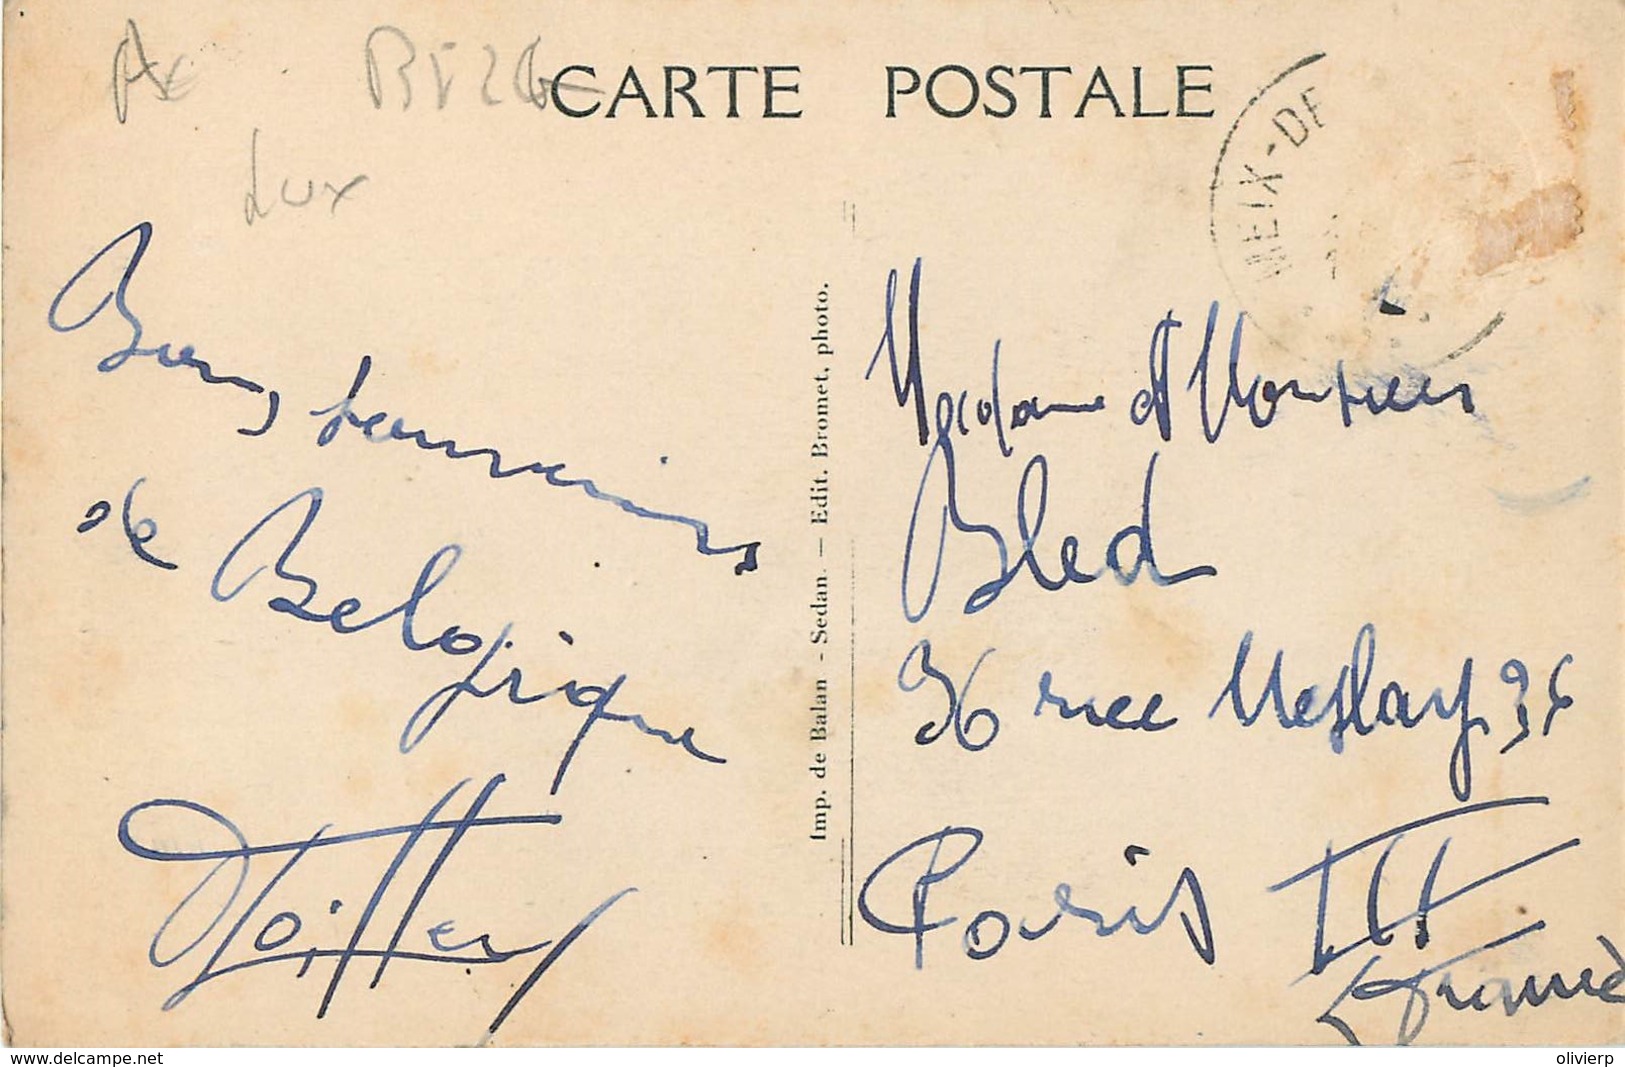 CARTE POSTALE
Lux
MEIX-DE
Bons souvenirs
de
Belgique
Imp. de Balan - Sedan. — Edit. Bromet, photo.
Madame et Monsieur
Bled
36 rue Meslay 36
Paris III
France
www.delcampe.net
olivierp